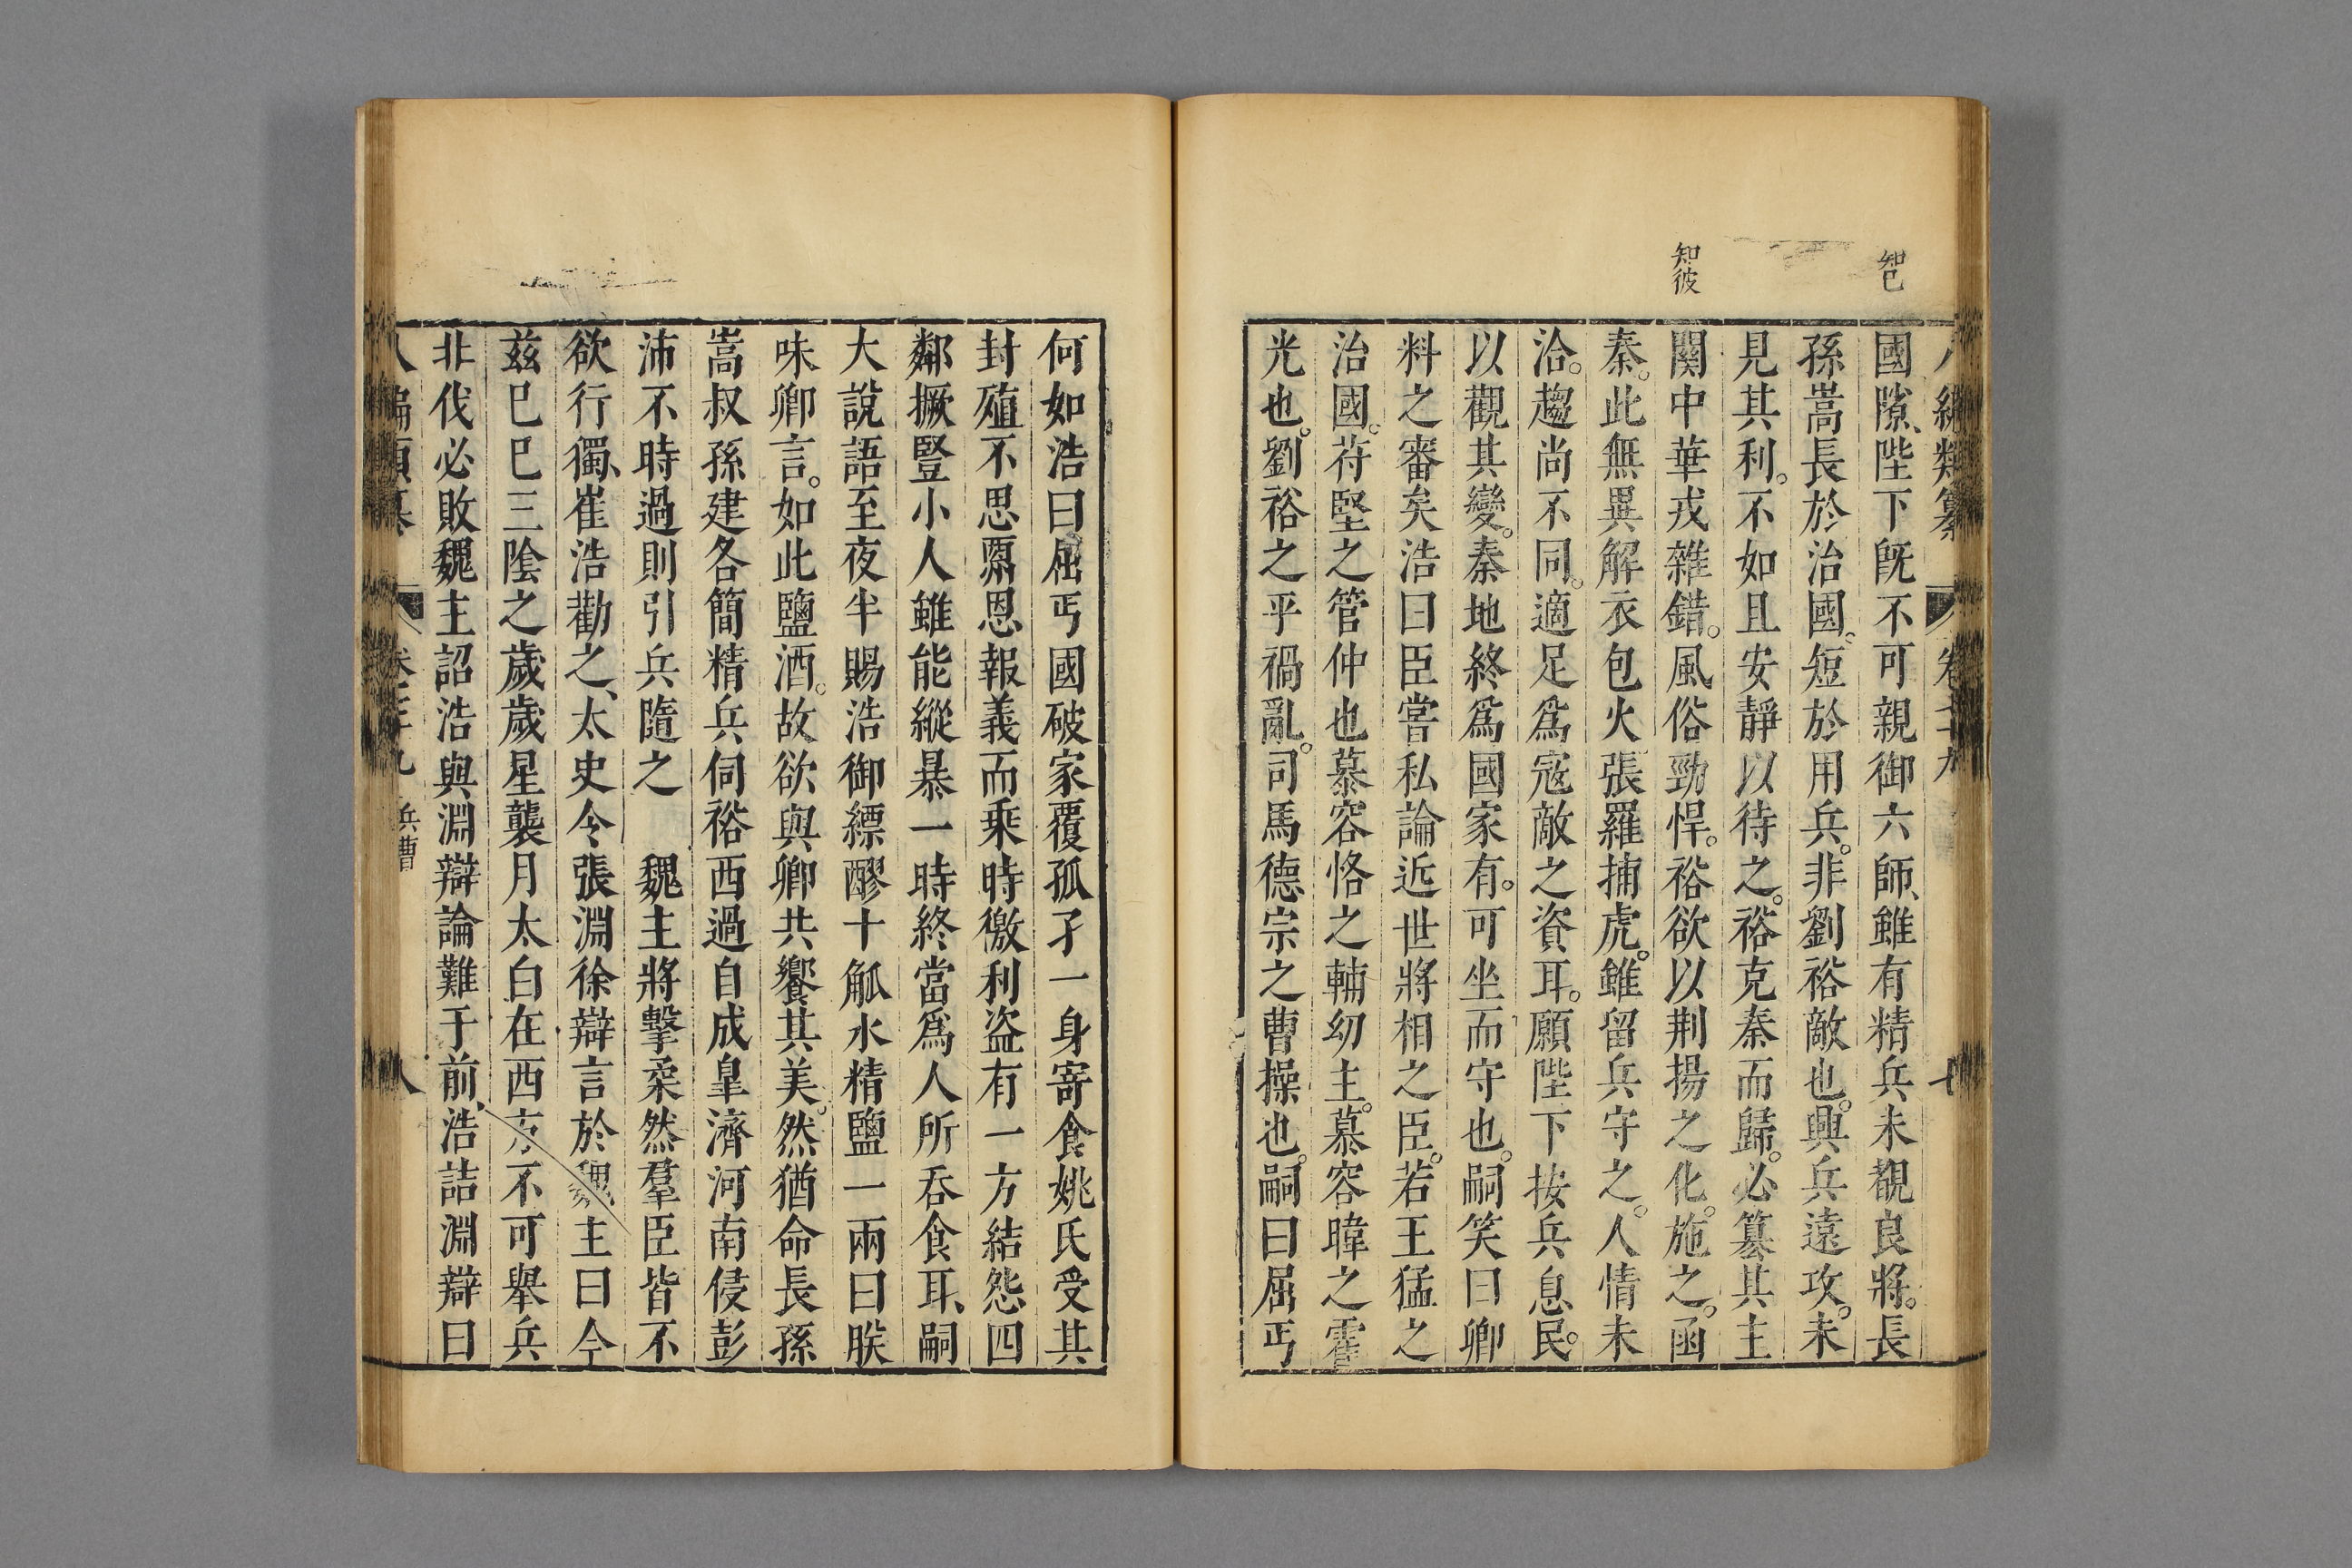 知己
知彼
八編類纂
國隙、陛下旣不可親御六師、雖有精兵未覩良將。長
孫嵩長於治國。短於用兵。非劉裕敵也。興兵遠攻。未
見其利。不如且安靜以待之。裕克秦而歸。必篡其主
關中華戎雜錯。風俗勁悍。裕欲以荆揚之化。施之。函
秦。此無異解衣包火張羅捕虎。雖留兵守之。人情未
洽。趨尚不同。適足爲寇敵之資耳。願陛下按兵息民。
以觀其變。秦地終爲國家有。可坐而守也。嗣笑曰卿
料之審矣浩曰臣嘗私論近世將相之臣。若王猛之
治國。苻堅之管仲也慕容恪之輔幼主。慕容暐之霍
光也。劉裕之平禍亂。司馬德宗之曹操也。嗣曰屈丐
何如浩曰屈丐國破家覆孤孑一身寄食姚氏受其
封殖不思酬恩報義而乘時徼利盗有一方結怨四
鄰撅豎小人雖能縱暴一時終當爲人所吞食耳、嗣
大說語至夜半賜浩御縹醪十觚水精鹽一兩曰朕
味卿言。如此鹽酒。故欲與卿共饗其美。然猶命長孫
嵩叔孫建各簡精兵伺裕西過自成臯濟河南侵彭
沛不時過則引兵隨之　魏主將擊柔然羣臣皆不
欲行獨、崔浩勸之、太史令張淵徐辯言於魏主曰今
兹巳巳三陰之歲歲星襲月太白在西方不可舉兵
非伐必敗魏主詔浩與淵辯論難于前、浩詰淵辯曰
兵曹
八